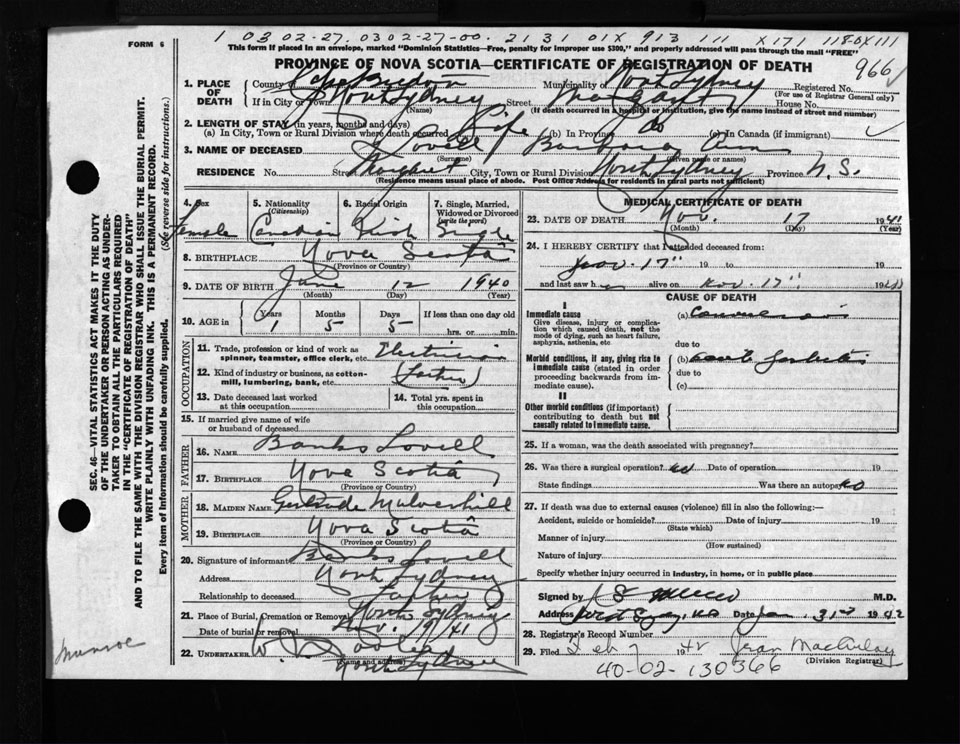 FORM 6
1 03 02-27. 03 02-27-00. 21 31 01X 913 111 X171 118-0X111
This form if placed in an envelope, marked "Dominion Statistics—Free, penalty for improper use $300," and properly addressed will pass through the mail "FREE"
PROVINCE OF NOVA SCOTIA—CERTIFICATE OF REGISTRATION OF DEATH
966
1. PLACE OF DEATH County of Cape Breton Municipality of North Sydney Registered No.
(For use of Registrar General only)
If in City or Town North Sydney Street Margaret House No.
(Name) (If death occurred in a hospital or institution, give the name instead of street and number)
2. LENGTH OF STAY (in years, months and days)
(a) In City, Town or Rural Division where death occurred Life (b) In Province do (c) In Canada (if immigrant)
3. NAME OF DECEASED Lovell Barbara Ann
(Surname) (Given name or names)
RESIDENCE No. Street Margaret City, Town or Rural Division North Sydney Province N.S.
(Residence means usual place of abode. Post Office Address for residents in rural parts not sufficient)
4. Sex Female
5. Nationality (Citizenship) Canadian
6. Racial Origin Irish
7. Single, Married, Widowed or Divorced (write the word) Single
8. BIRTHPLACE Nova Scotia
(Province or Country)
9. DATE OF BIRTH June 12 1940
(Month) (Day) (Year)
10. AGE in Years 1 Months 5 Days 5 If less than one day old
hrs. or min.
OCCUPATION
11. Trade, profession or kind of work as spinner, teamster, office clerk, etc. Electrician
12. Kind of industry or business, as cotton-mill, lumbering, bank, etc. (Father)
13. Date deceased last worked at this occupation
14. Total yrs. spent in this occupation
15. If married give name of wife or husband of deceased
FATHER
16. NAME Banks Lovell
17. BIRTHPLACE Nova Scotia
(Province or Country)
MOTHER
18. MAIDEN NAME Gertrude Mulverhill
19. BIRTHPLACE Nova Scotia
(Province or Country)
20. Signature of informant Banks Lovell
Address North Sydney
Relationship to deceased Father
21. Place of Burial, Cremation or Removal North Sydney
Date of burial or removal 19/41
22. UNDERTAKER W.
(Name and address) North Sydney
MEDICAL CERTIFICATE OF DEATH
23. DATE OF DEATH Nov. 17 1941
(Month) (Day) (Year)
24. I HEREBY CERTIFY that I attended deceased from:
Nov. 17" 19 to 19
and last saw h alive on Nov. 17" 19
CAUSE OF DEATH
I
Immediate cause
Give disease, injury or complication which caused death, not the mode of dying, such as heart failure, asphyxia, asthenia, etc
(a)
due to
Morbid conditions, if any, giving rise to immediate cause (stated in order proceeding backwards from immediate cause).
(b) acute
due to
(c)
II
Other morbid conditions (if important) contributing to death but not causally related to immediate cause.
25. If a woman, was the death associated with pregnancy?
26. Was there a surgical operation? no Date of operation 19
State findings Was there an autopsy no
27. If death was due to external causes (violence) fill in also the following:—
Accident, suicide or homicide? Date of injury 19
(State which)
Manner of injury
(How sustained)
Nature of injury
Specify whether injury occurred in industry, in home, or in public place
Signed by M.D.
Address Date Jan. 31st 1942
28. Registrar's Record Number
29. Filed Feb 7 1942 Jean MacAulay
(Division Registrar)
40-02-130366
SEC. 46—VITAL STATISTICS ACT MAKES IT THE DUTY
OF THE UNDERTAKER OR PERSON ACTING AS UNDER-
TAKER TO OBTAIN ALL THE PARTICULARS REQUIRED
IN THE "CERTIFICATE OF REGISTRATION OF DEATH"
AND TO FILE THE SAME WITH THE DIVISION REGISTRAR WHO SHALL ISSUE THE BURIAL PERMIT.
WRITE PLAINLY WITH UNFADING INK. THIS IS A PERMANENT RECORD.
Every item of Information should be carefully supplied. (See reverse side for instructions.)
Munroe